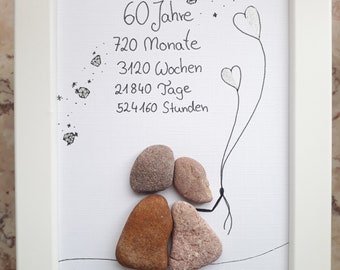 60 Jahre
720 Monate
3120 Wochen
21840 Tage
524160 Stunden